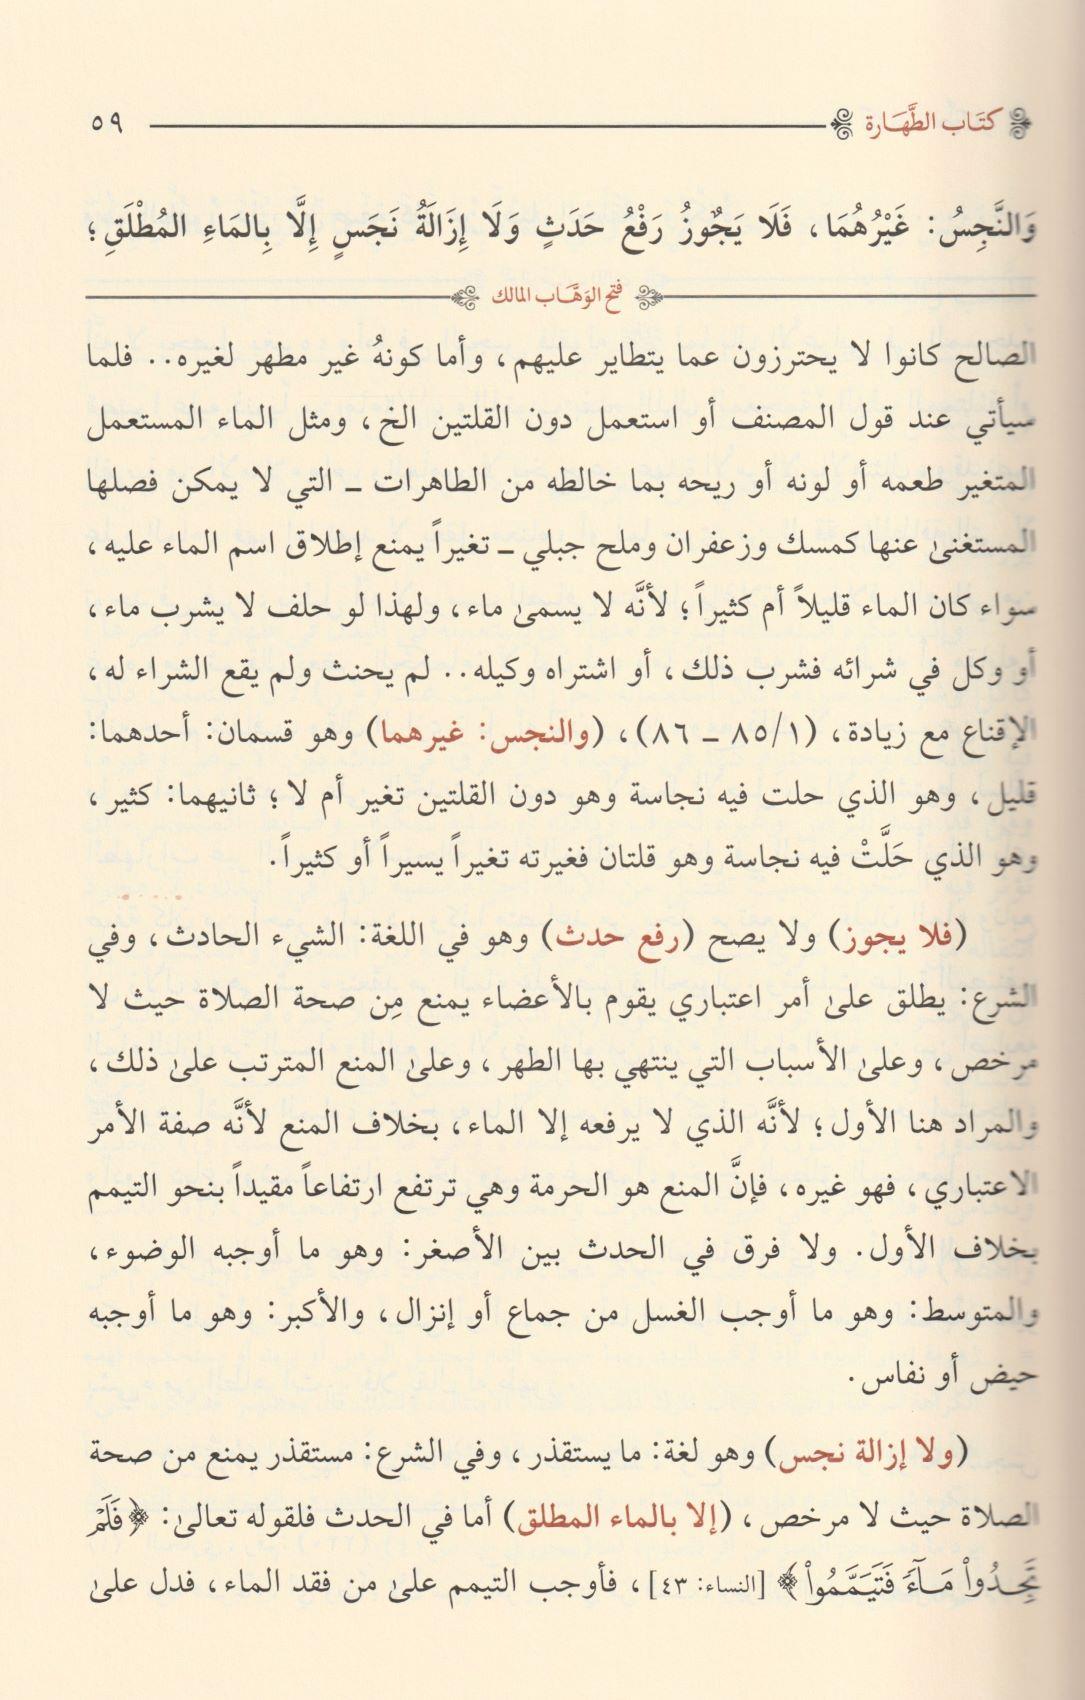 كتاب الطَّهَارة ٥٩
وَالنَّجِسُ: غَيْرُهُمَا، فَلَا يَجُوزُ رَفْعُ حَدَثٍ وَلَا إِزَالَةُ نَجَسٍ إِلَّا بِالمَاءِ المُطْلَقِ؛
فتح الوَهَّاب المالك
الصالح كانوا لا يحترزون عما يتطاير عليهم، وأما كونهُ غير مطهر لغيره.. فلما
سيأتي عند قول المصنف أو استعمل دون القلتين الخ، ومثل الماء المستعمل
المتغير طعمه أو لونه أو ريحه بما خالطه من الطاهرات ـ التي لا يمكن فصلها
المستغنىٰ عنها كمسك وزعفران وملح جبلي ـ تغيراً يمنع إطلاق اسم الماء عليه،
سواء كان الماء قليلاً أم كثيراً؛ لأنَّه لا يسمىٰ ماء، ولهذا لو حلف لا يشرب ماء،
أو وكل في شرائه فشرب ذلك، أو اشتراه وكيله.. لم يحنث ولم يقع الشراء له،
الإقناع مع زيادة، (٨٥/١ ـ ٨٦)، (والنجس: غيرهما) وهو قسمان: أحدهما:
قليل، وهو الذي حلت فيه نجاسة وهو دون القلتين تغير أم لا؛ ثانيهما: كثير،
وهو الذي حَلَّتْ فيه نجاسة وهو قلتان فغيرته تغيراً يسيراً أو كثيراً.
(فلا يجوز) ولا يصح (رفع حدث) وهو في اللغة: الشيء الحادث، وفي
الشرع: يطلق علىٰ أمر اعتباري يقوم بالأعضاء يمنع مِن صحة الصلاة حيث لا
مرخص، وعلىٰ الأسباب التي ينتهي بها الطهر، وعلىٰ المنع المترتب علىٰ ذلك،
والمراد هنا الأول؛ لأنَّه الذي لا يرفعه إلا الماء، بخلاف المنع لأنَّه صفة الأمر
الاعتباري، فهو غيره، فإنَّ المنع هو الحرمة وهي ترتفع ارتفاعاً مقيداً بنحو التيمم
بخلاف الأول. ولا فرق في الحدث بين الأصغر: وهو ما أوجبه الوضوء،
والمتوسط: وهو ما أوجب الغسل من جماع أو إنزال، والأكبر: وهو ما أوجبه
حيض أو نفاس.
(ولا إزالة نجس) وهو لغة: ما يستقذر، وفي الشرع: مستقذر يمنع من صحة
الصلاة حيث لا مرخص، (إلا بالماء المطلق) أما في الحدث فلقوله تعالىٰ: ﴿فَلَمْ
تَجِدُواْ مَآءً فَتَيَمَّمُواْ﴾ [النساء: ٤٣]، فأوجب التيمم علىٰ من فقد الماء، فدل علىٰ